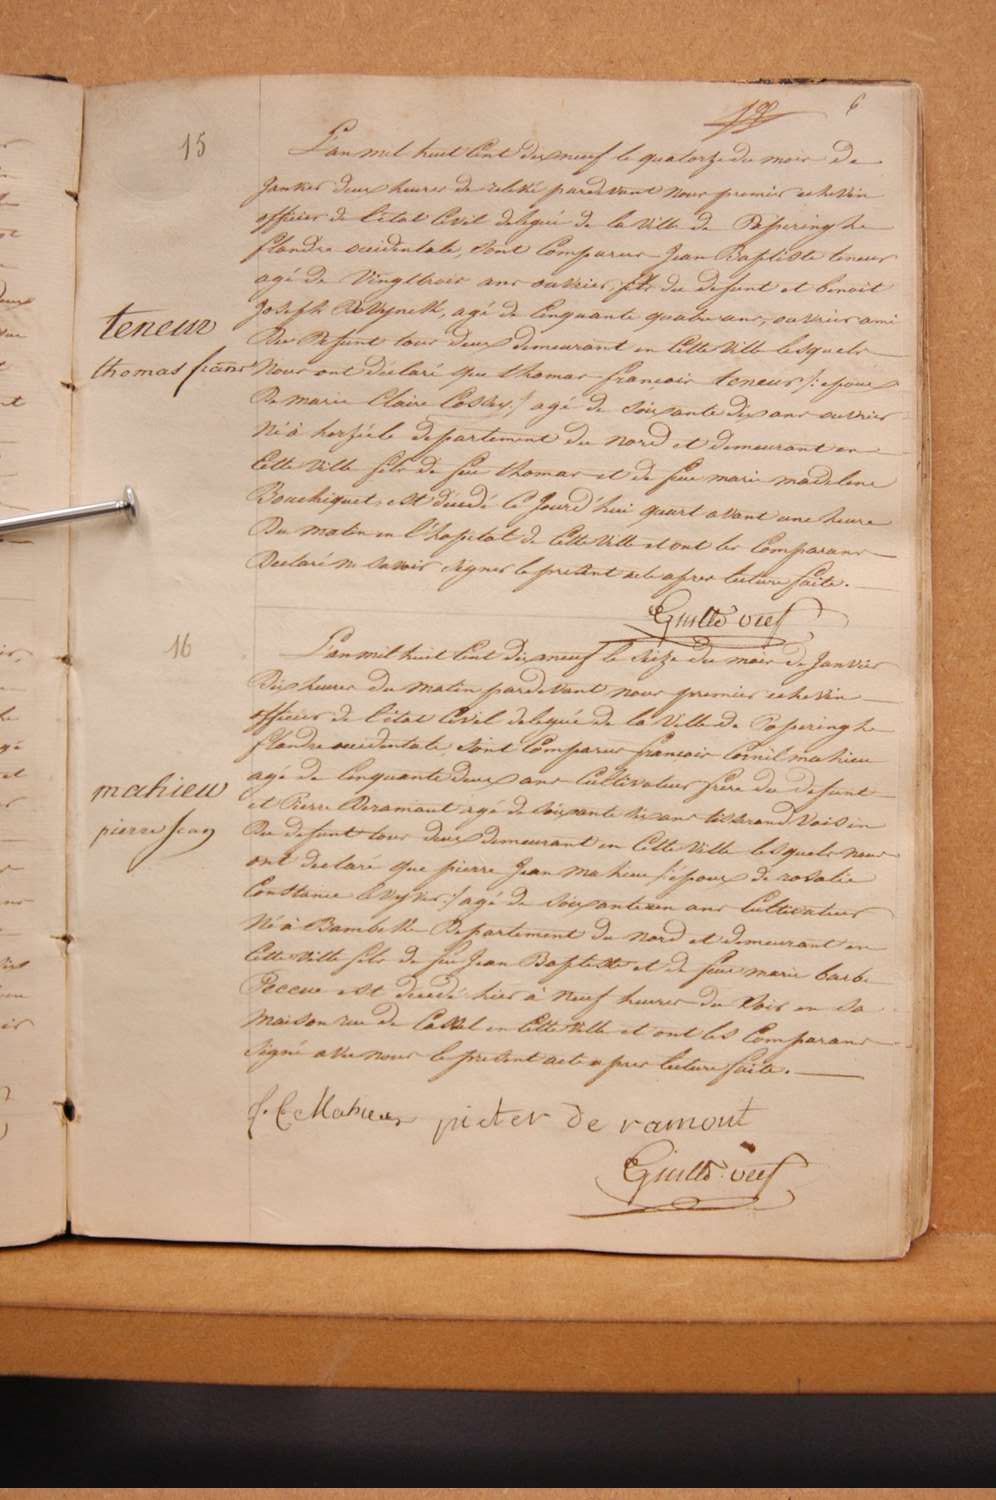 6
15
L'an mil huit cent dix neuf le quatorze du mois de
Janvier deux heures de relevé pardevant nous premier echevin
officier de l'état civil delegué de la ville de Poperinghe
flandre occidentale, sont comparus Jean Baptiste teneur
agé de vingttrois ans ouvrier, fils du defunt et benoit
Joseph Dewynck, agé de cinquante quatre ans, ouvrier ami
Du Defunt tous deux demeurant en cette ville lesquels
teneur
thomas franc
Nous ont déclaré que thomas françois teneur /: epoux
De marie Claire Cossey :/ agé de soixante dix ans ouvrier
Né à herzéele departement du nord et demeurant en
Cette ville fils de feu thomas et de feue marie madelene
Bouchiquet, est décédé ce Jourd'hui quart avant une heure
Du matin en l'hopital de cette ville et ont les comparans
Declaré ne savoir signer le présent acte apres lecture faite.
Guillo veef
16
L'an mil huit cent dix neuf le seize du mois de Janvier
Dix heures du matin pardevant nous premier echevin
officier de l'état civil delegué de la ville de Poperinghe
flandre occidentale sont comparus françois Cornil mahieu
agé de cinquante deux ans cultivateur frere du defunt
mahieu
pierre Jean
et Pierre Deramaut agé de soixante six ans tisserand voisin
Du defunt tous deux demeurant en cette ville lesquels nous
ont declaré que pierre Jean mahieu /: epoux de rosalie
Constance :/ agé de ans cultivateur
Né à Bambeke Departement du nord et demeurant en
Cette ville fils de feu Jean Baptiste et de feue marie barbe
Peccue est decedé hier à neuf heures du soir en sa
maison rue de Cassel en cette ville et ont les comparans
signé avec nous le present acte apres lecture faite.
f. C Mahieu pieter de ramout
Guillo veef